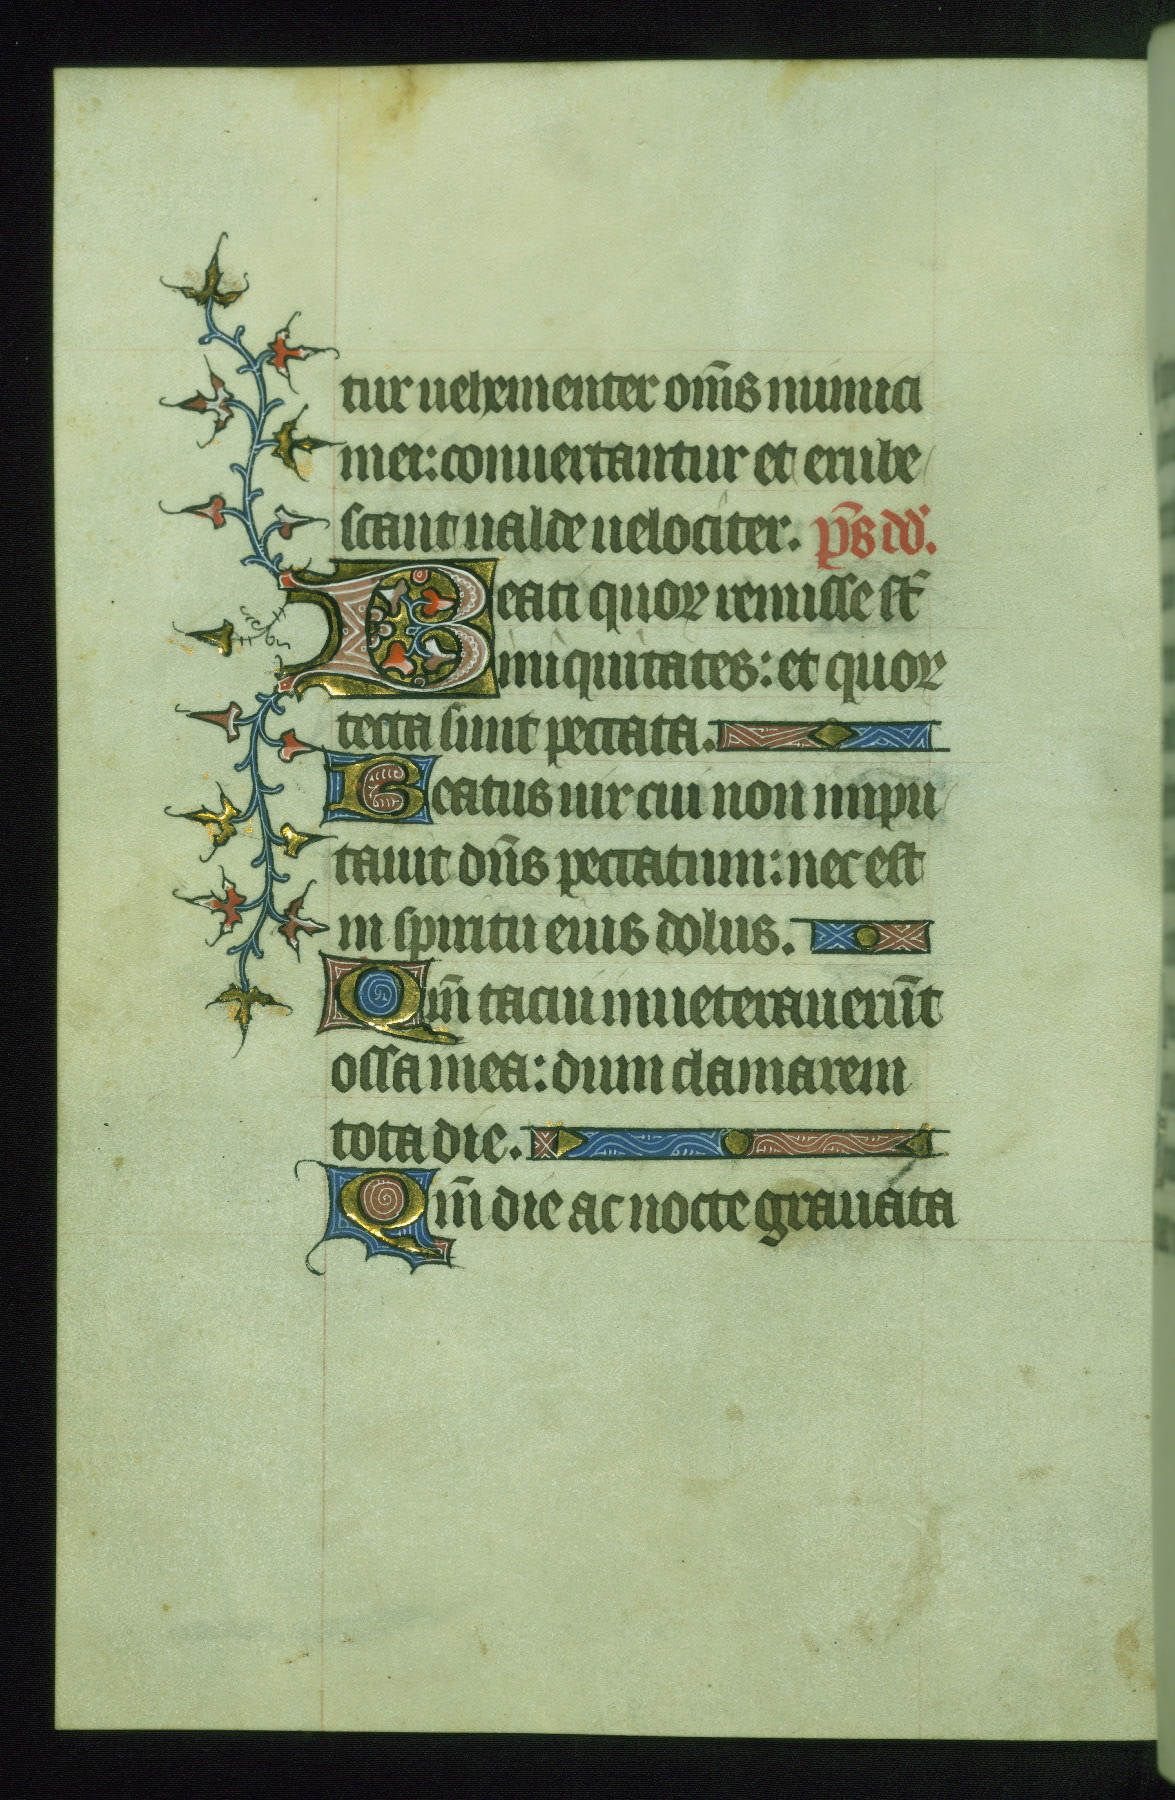 tur uehementer om̅s inimici
mei: conuertantur et erube
scant ualde uelociter. p̅s dd̅.
Beati quoꝝ remisse st̅
iniquitates: et quoꝝ
tecta sunt peccata.
Beatus uir cui non impu
tauit dn̅s peccatum: nec est
in spiritu eius dolus.
Qm̅ tacui inueterauerūt
ossa mea: dum clamarem
tota die.
Qm̅ die ac nocte grauata